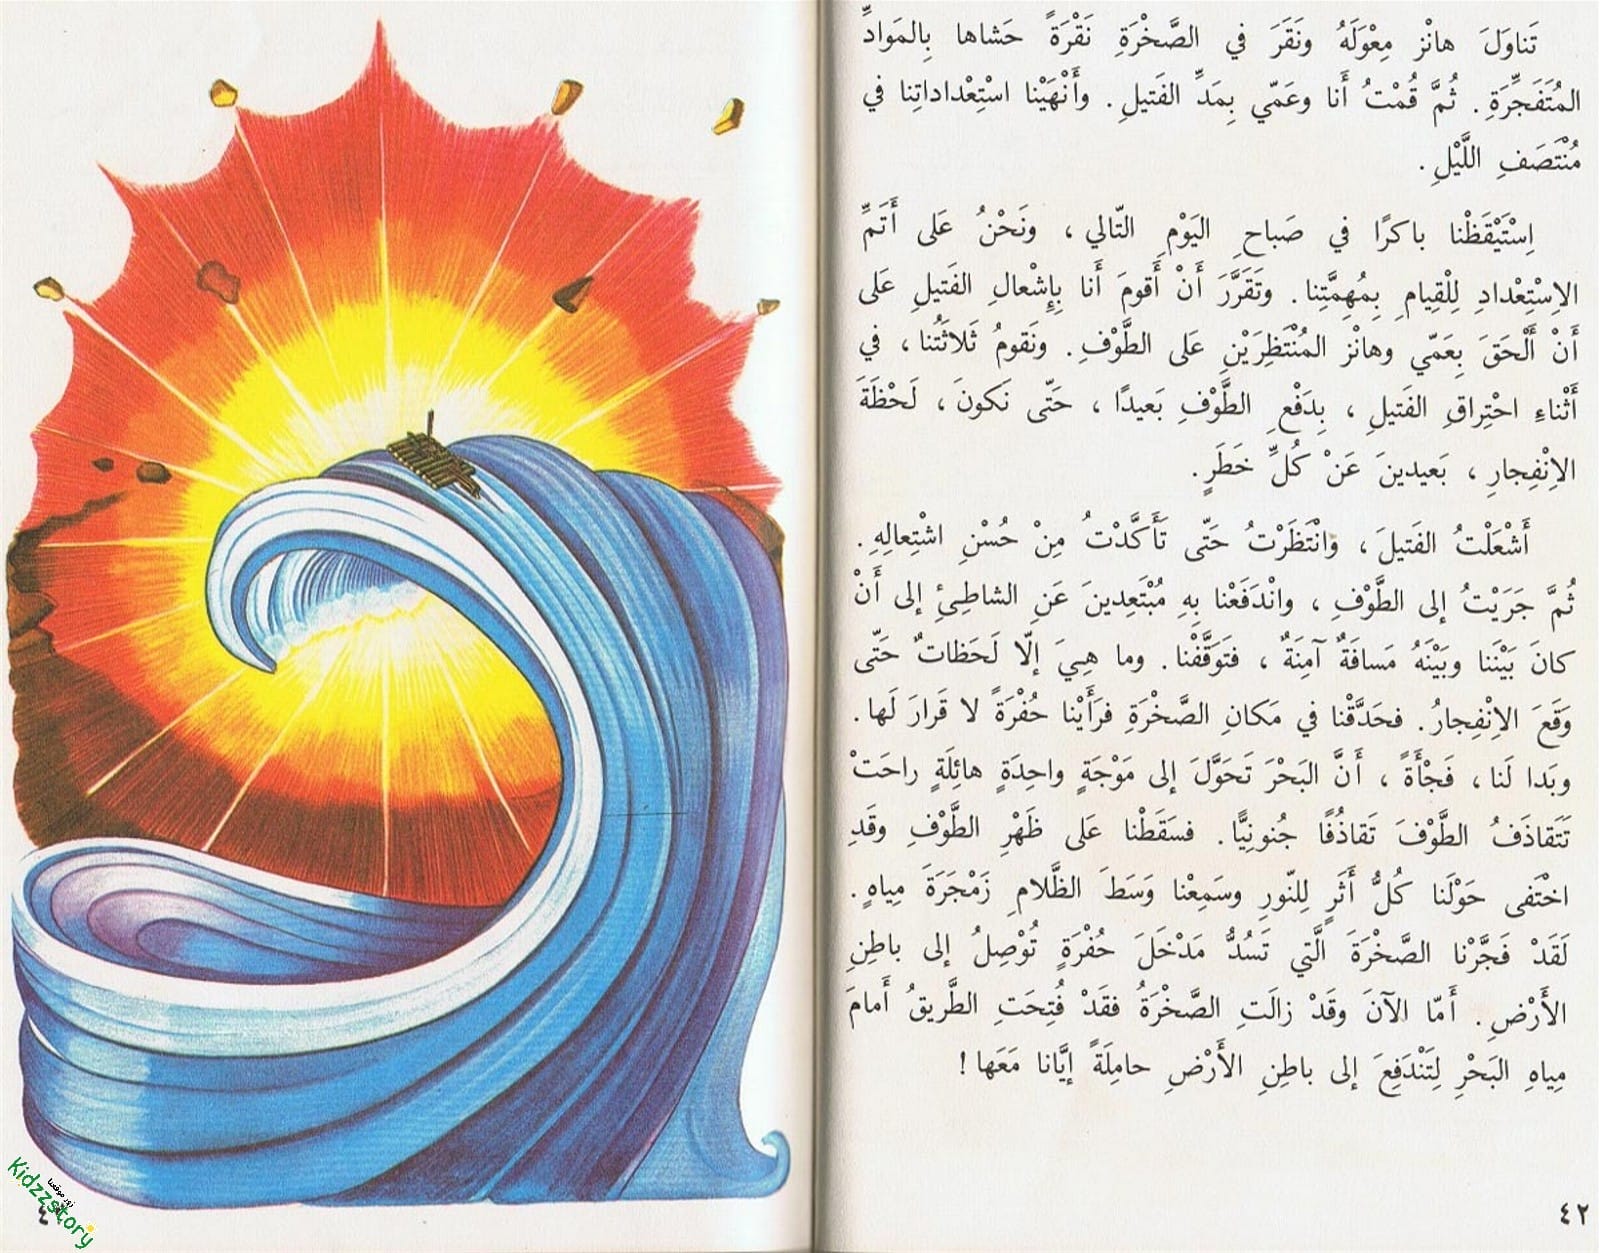 تَناوَلَ هانْز مِعْوَلَهُ ونَقَرَ في الصَّخْرَةِ نَقْرَةً حَشاها بِالمَوادِّ
المُتَفَجِّرَةِ. ثُمَّ قُمْتُ أَنا وعَمّي بِمَدِّ الفَتيلِ. وأَنْهَيْنا اسْتِعْداداتِنا في
مُنْتَصَفِ اللَّيْلِ.
اِسْتَيْقَظْنا باكرًا في صَباحِ اليَوْمِ التّالي، ونَحْنُ عَلى أَتَمِّ
الاِسْتِعْدادِ لِلْقِيامِ بِمُهِمَّتِنا. وتَقَرَّرَ أَنْ أَقومَ أَنا بِإِشْعالِ الفَتيلِ عَلى
أَنْ أَلْحَقَ بِعَمّي وهانْز المُنْتَظِرَيْنِ عَلى الطَّوْفِ. ونَقومُ ثَلاثَتُنا، في
أَثْناءِ احْتِراقِ الفَتيلِ، بِدَفْعِ الطَّوْفِ بَعيدًا، حَتّى نَكونَ، لَحْظَةَ
الاِنْفِجارِ، بَعيدينَ عَنْ كُلِّ خَطَرٍ.
أَشْعَلْتُ الفَتيلَ، وانْتَظَرْتُ حَتّى تَأَكَّدْتُ مِنْ حُسْنِ اشْتِعالِهِ.
ثُمَّ جَرَيْتُ إلى الطَّوْفِ، وانْدَفَعْنا بِهِ مُبْتَعِدينَ عَنِ الشاطِئِ إلى أَنْ
كانَ بَيْنَنا وبَيْنَهُ مَسافَةٌ آمِنَةٌ، فتَوَقَّفْنا. وما هِيَ إلّا لَحَظاتٌ حَتّى
وَقَعَ الاِنْفِجارُ. فحَدَّقْنا في مَكانِ الصَّخْرَةِ فرَأَيْنا حُفْرَةً لا قَرارَ لَها.
وبَدا لَنا، فَجْأَةً، أَنَّ البَحْرَ تَحَوَّلَ إلى مَوْجَةٍ واحِدَةٍ هائِلَةٍ راحَتْ
تَتَقاذَفُ الطَّوْفَ تَقاذُفًا جُنونِيًّا. فسَقَطْنا عَلى ظَهْرِ الطَّوْفِ وقَدِ
اخْتَفى حَوْلَنا كُلُّ أَثَرٍ لِلنّورِ وسَمِعْنا وَسَطَ الظَّلامِ زَمْجَرَةَ مِياهٍ.
لَقَدْ فَجَّرْنا الصَّخْرَةَ الَّتي تَسُدُّ مَدْخَلَ حُفْرَةٍ تُوْصِلُ إلى باطِنِ
الأَرْضِ. أَمّا الآنَ وقَدْ زالَتِ الصَّخْرَةُ فقَدْ فُتِحَتِ الطَّريقُ أَمامَ
مِياهِ البَحْرِ لِتَنْدَفِعَ إلى باطِنِ الأَرْضِ حامِلَةً إيَّانا مَعَها!
٤٢
زور موقعنا
Kidzzstory